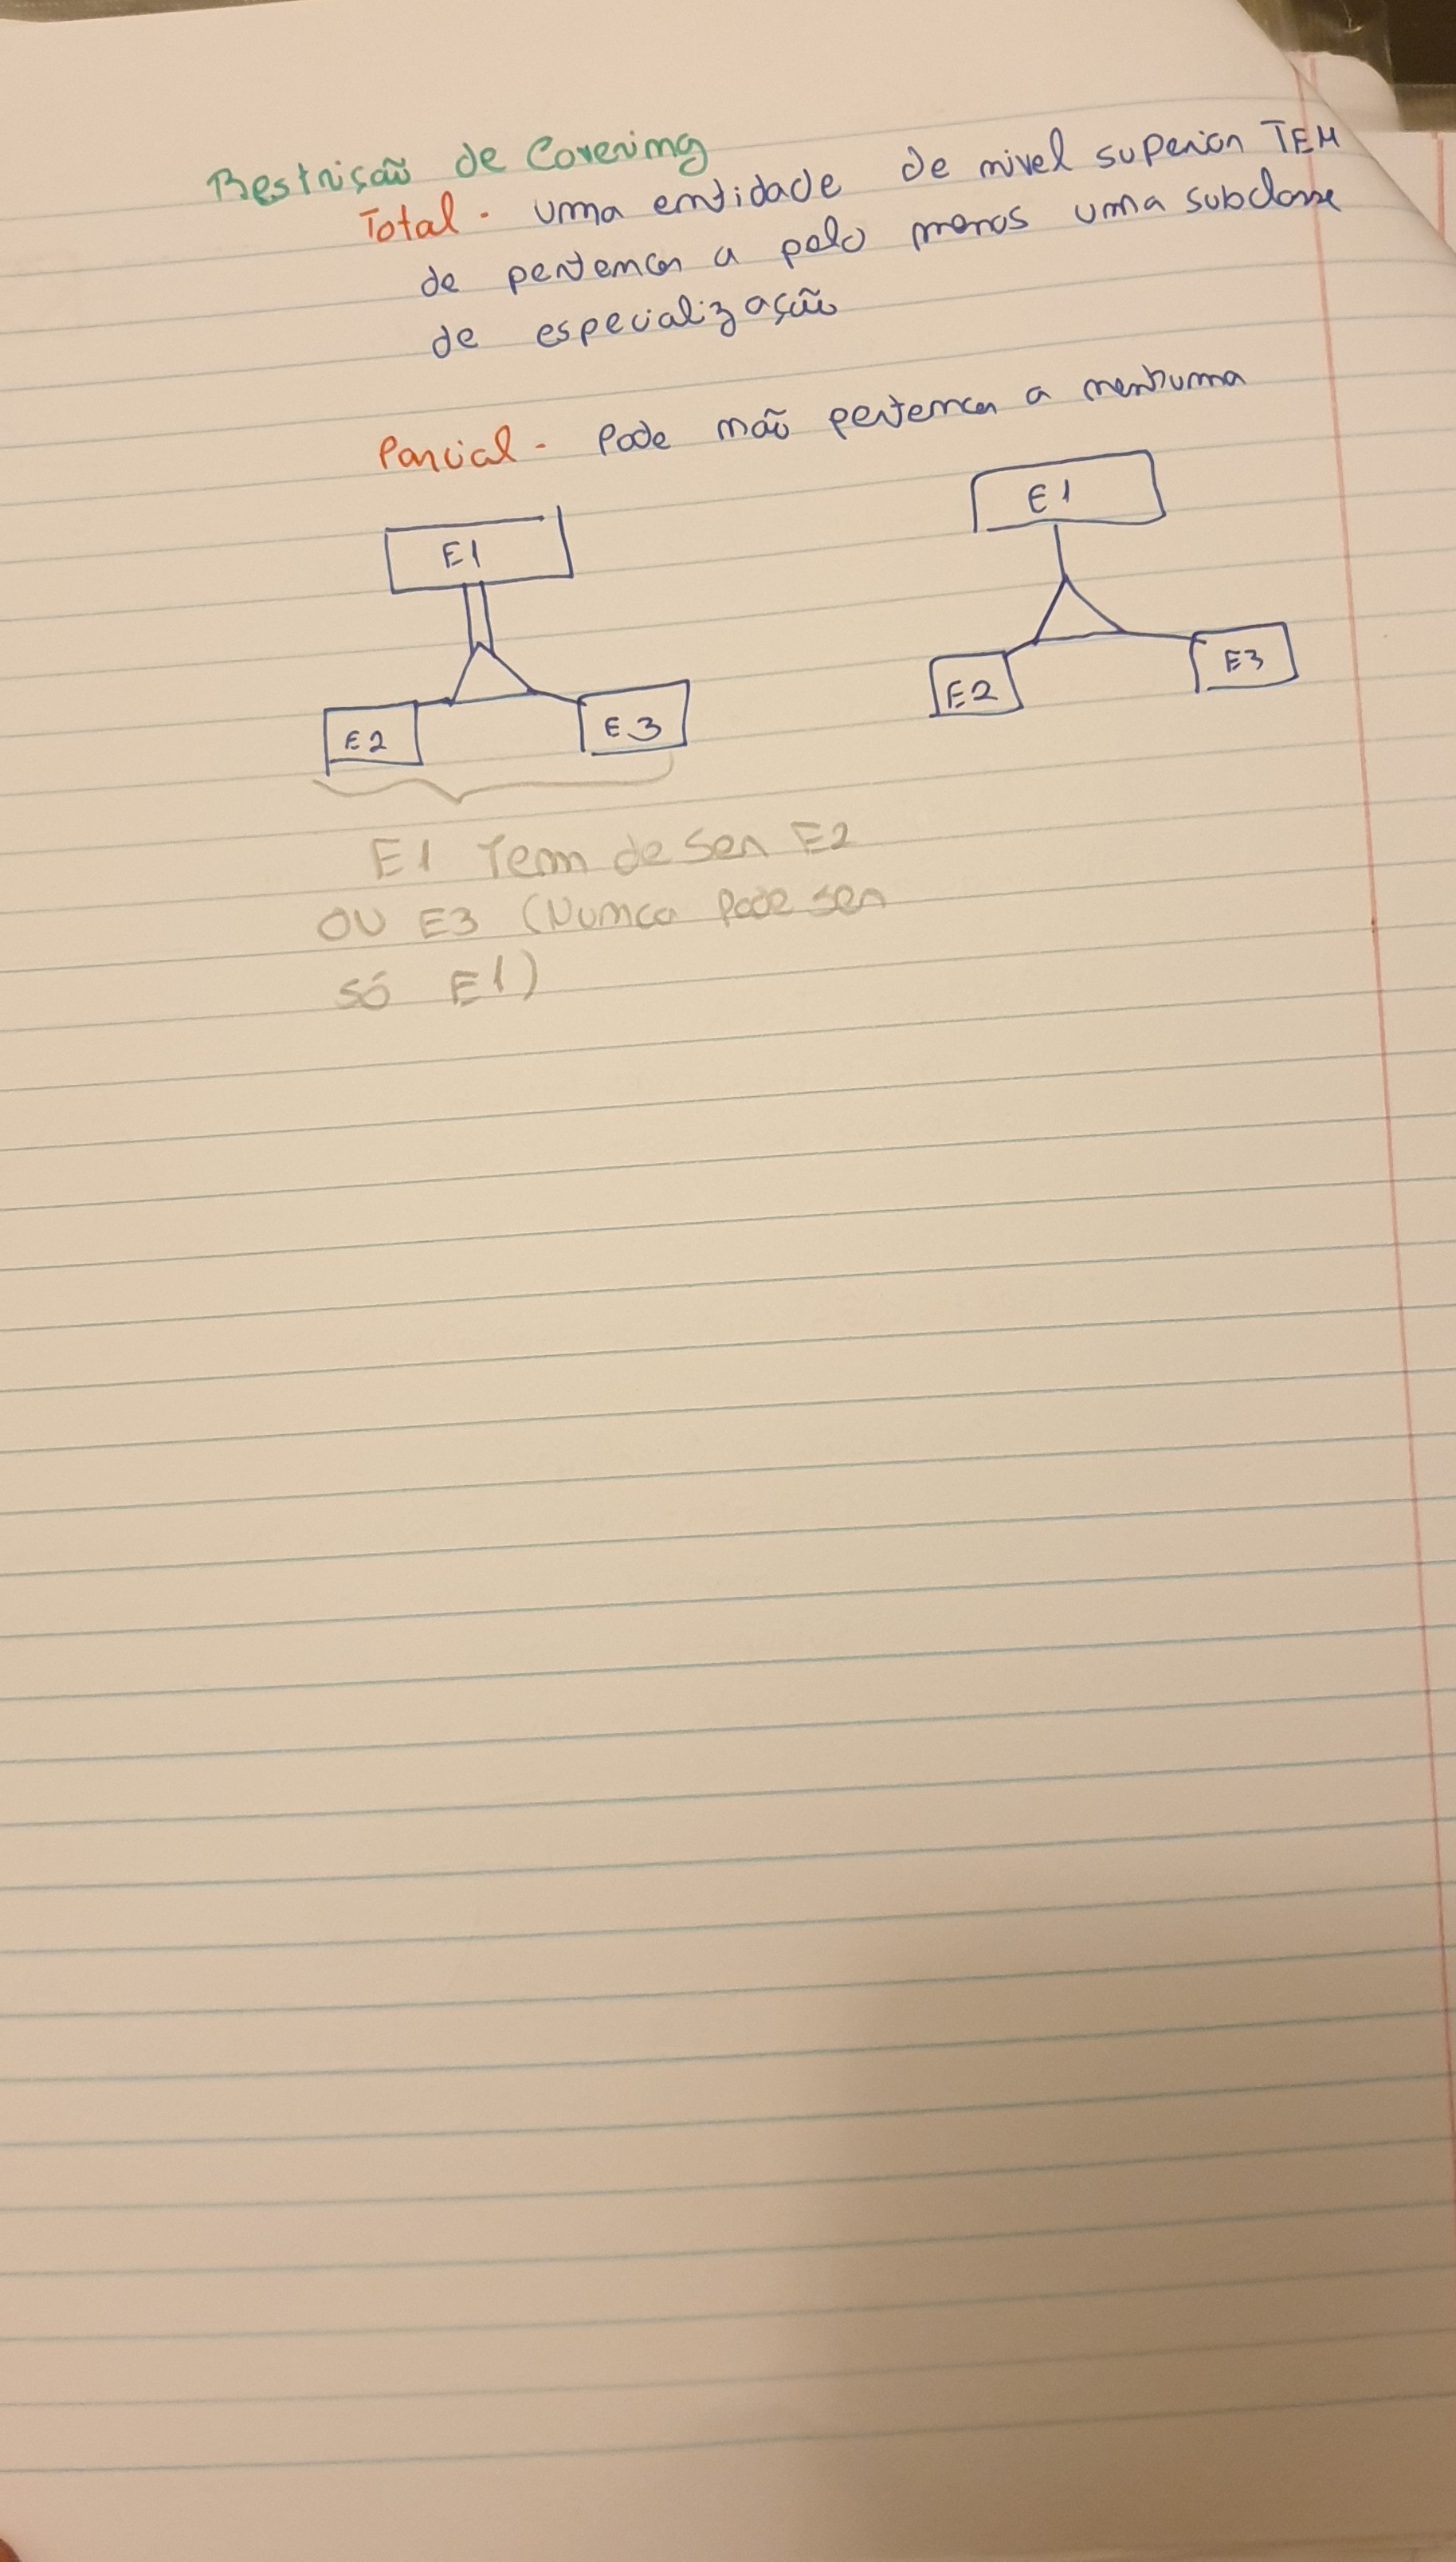 Restrição de Covering
Total - uma entidade de nivel superior TEM
de pertencer a pelo menos uma subclasse
de especialização
Parcial - Pode não pertencer a nenhuma
E1
E1
E2
E3
E2
E3
E1 Tem de ser E2
OU E3 (Nunca pode ser
só E1)